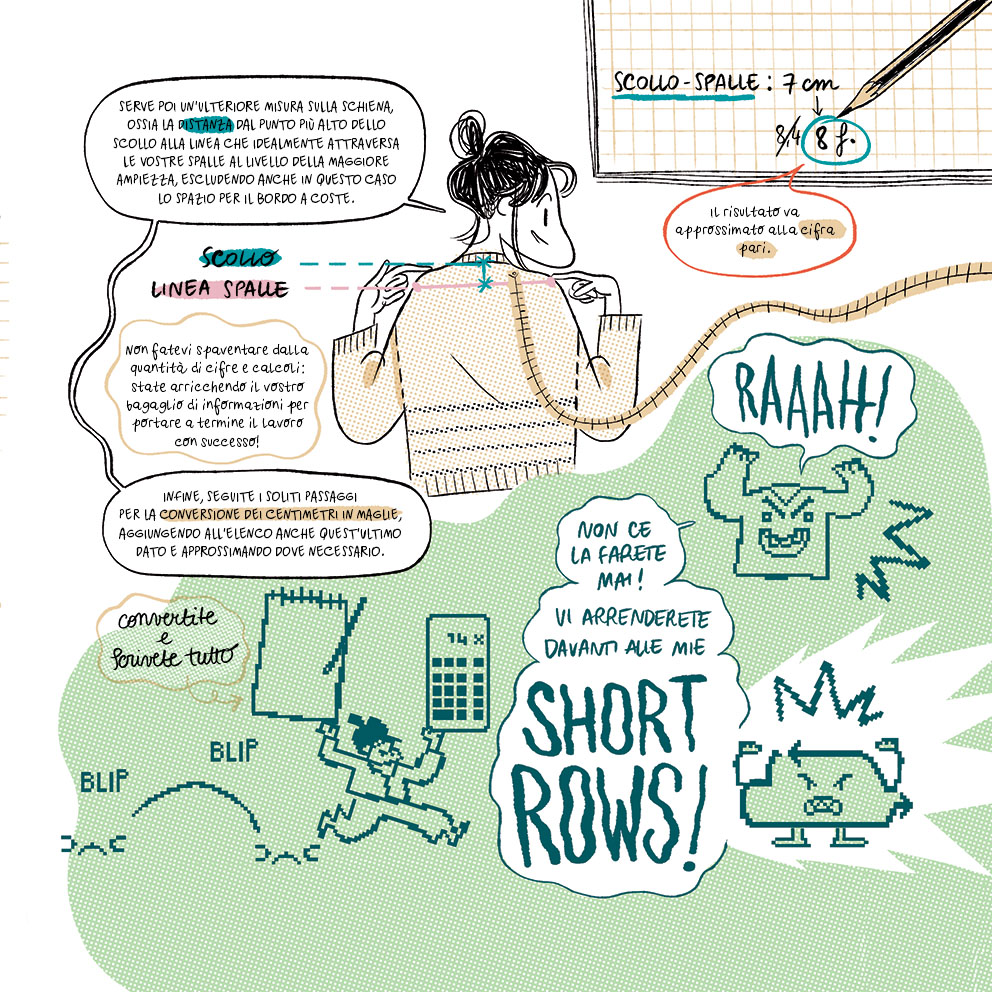 SERVE POI UN'ULTERIORE MISURA SULLA SCHIENA,
OSSIA LA DISTANZA DAL PUNTO PIÙ ALTO DELLO
SCOLLO ALLA LINEA CHE IDEALMENTE ATTRAVERSA
LE VOSTRE SPALLE AL LIVELLO DELLA MAGGIORE
AMPIEZZA, ESCLUDENDO ANCHE IN QUESTO CASO
LO SPAZIO PER IL BORDO A COSTE.
SCOLLO-SPALLE: 7 cm
8,4 8 f.
Il risultato va
approssimato alla cifra
pari.
SCOLLO
LINEA SPALLE
Non fatevi spaventare dalla
quantità di cifre e calcoli:
state arricchendo il vostro
bagaglio di informazioni per
portare a termine il lavoro
con successo!
INFINE, SEGUITE I SOLITI PASSAGGI
PER LA CONVERSIONE DEI CENTIMETRI IN MAGLIE,
AGGIUNGENDO ALL'ELENCO ANCHE QUEST'ULTIMO
DATO E APPROSSIMANDO DOVE NECESSARIO.
RAAAH!
NON CE
LA FARETE
MAI!
VI ARRENDERETE
DAVANTI ALLE MIE
SHORT
ROWS!
convertite
e
scrivete tutto
14 x
BLIP
BLIP